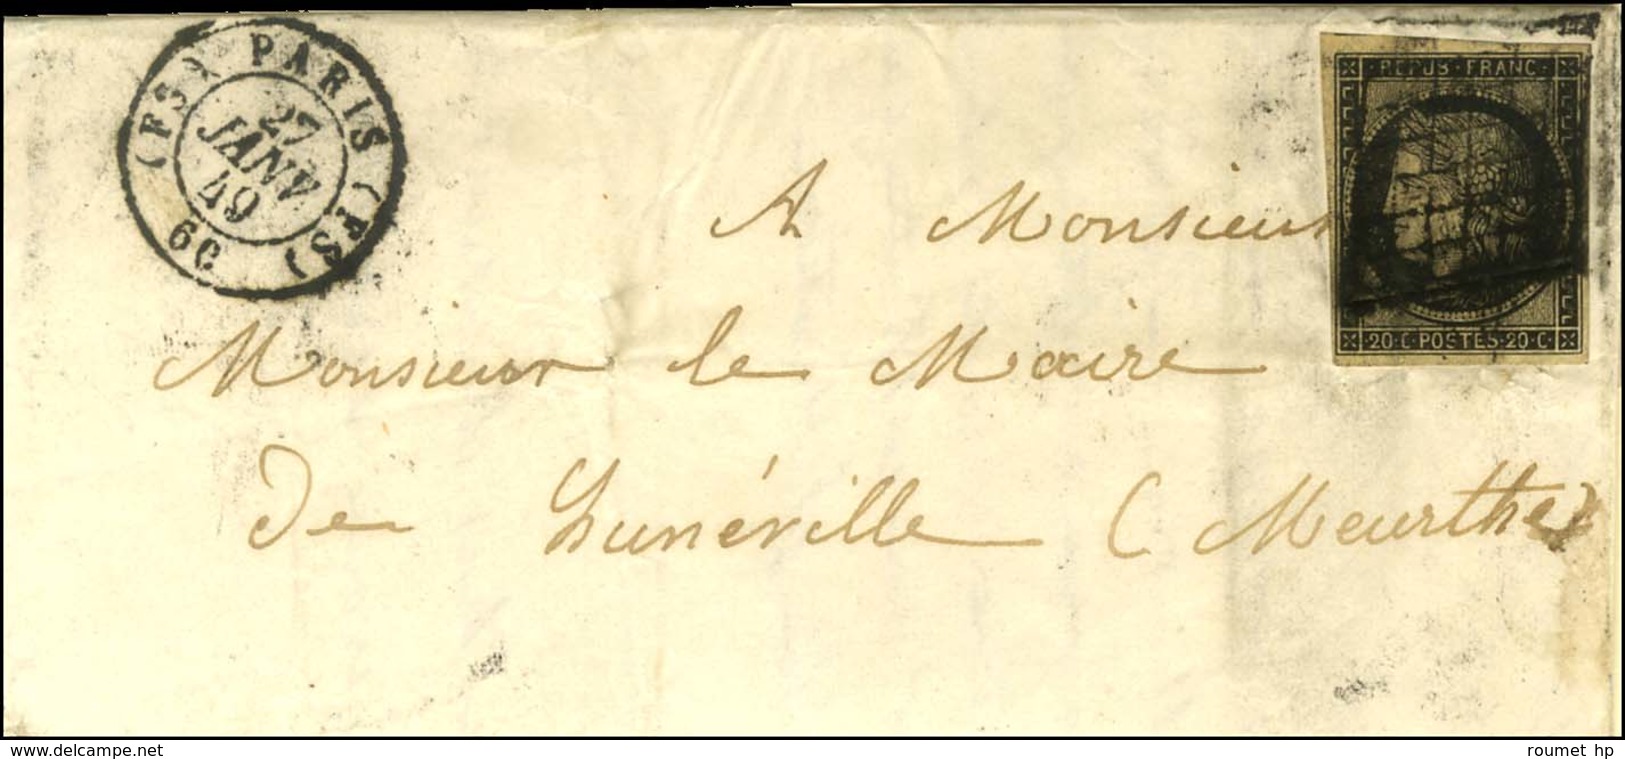 (FS) PARIS (FS)
27
JANV
49
60
REPUB · FRANC ·
20 · C · POSTES · 20 · C ·
A Monsieur
Monsieur le Maire
de Lunéville (Meurthe)
www.delcampe.net
roumet hp